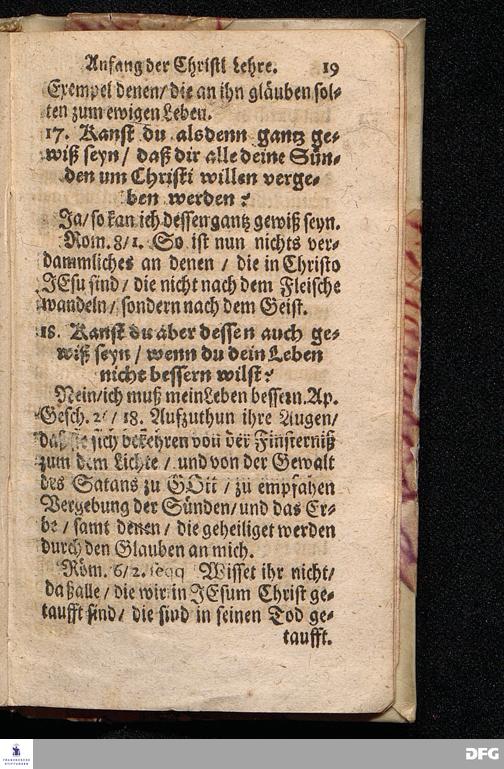 Anfang der Christl Lehre. 19
Exempel denen/ die an ihn gläuben sol-
ten zum ewigen Leben.
17. Kanst du alsdenn gantz ge-
wiß seyn / daß dir alle deine Sün-
den um Christi willen verge-
ben werden?
Ja/ so kan ich dessen gantz gewiß seyn.
Rom. 8/1. So ist nun nichts ver-
dammliches an denen / die in Christo
JEsu sind / die nicht nach dem Fleische
wandeln / sondern nach dem Geist.
18. Kanst du aber dessen auch ge-
wiß seyn / wenn du dein Leben
nicht bessern wilst?
Nein/ ich muß mein Leben bessern. Ap.
Gesch. / 18. Aufzuthun ihre Augen/
daß sie sich bekehren von der Finsterniß
zum dem Lichte / und von der Gewalt
des Satans zu GOtt / zu empfahen
Vergebung der Sünden/ und das Er-
be / samt denen / die geheiliget werden
durch den Glauben an mich.
Röm. 6/2. seqq Wisset ihr nicht/
daß alle / die wir in JEsum Christ ge-
taufft sind / die sind in seinen Tod ge-
taufft.
FRANCKESCHE
STIFTUNGEN
DFG